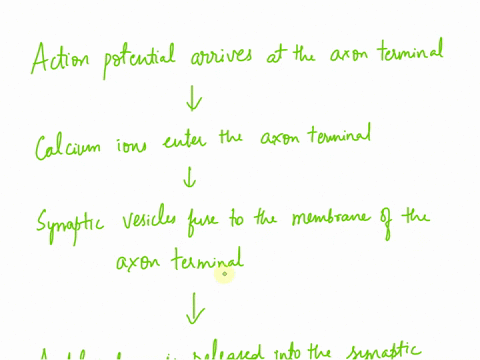 Action potential arrives at the axon terminal
↓
Calcium ions enter the axon terminal
↓
Synaptic vesicles fuse to the membrane of the
axon terminal
↓
is released into the synaptic